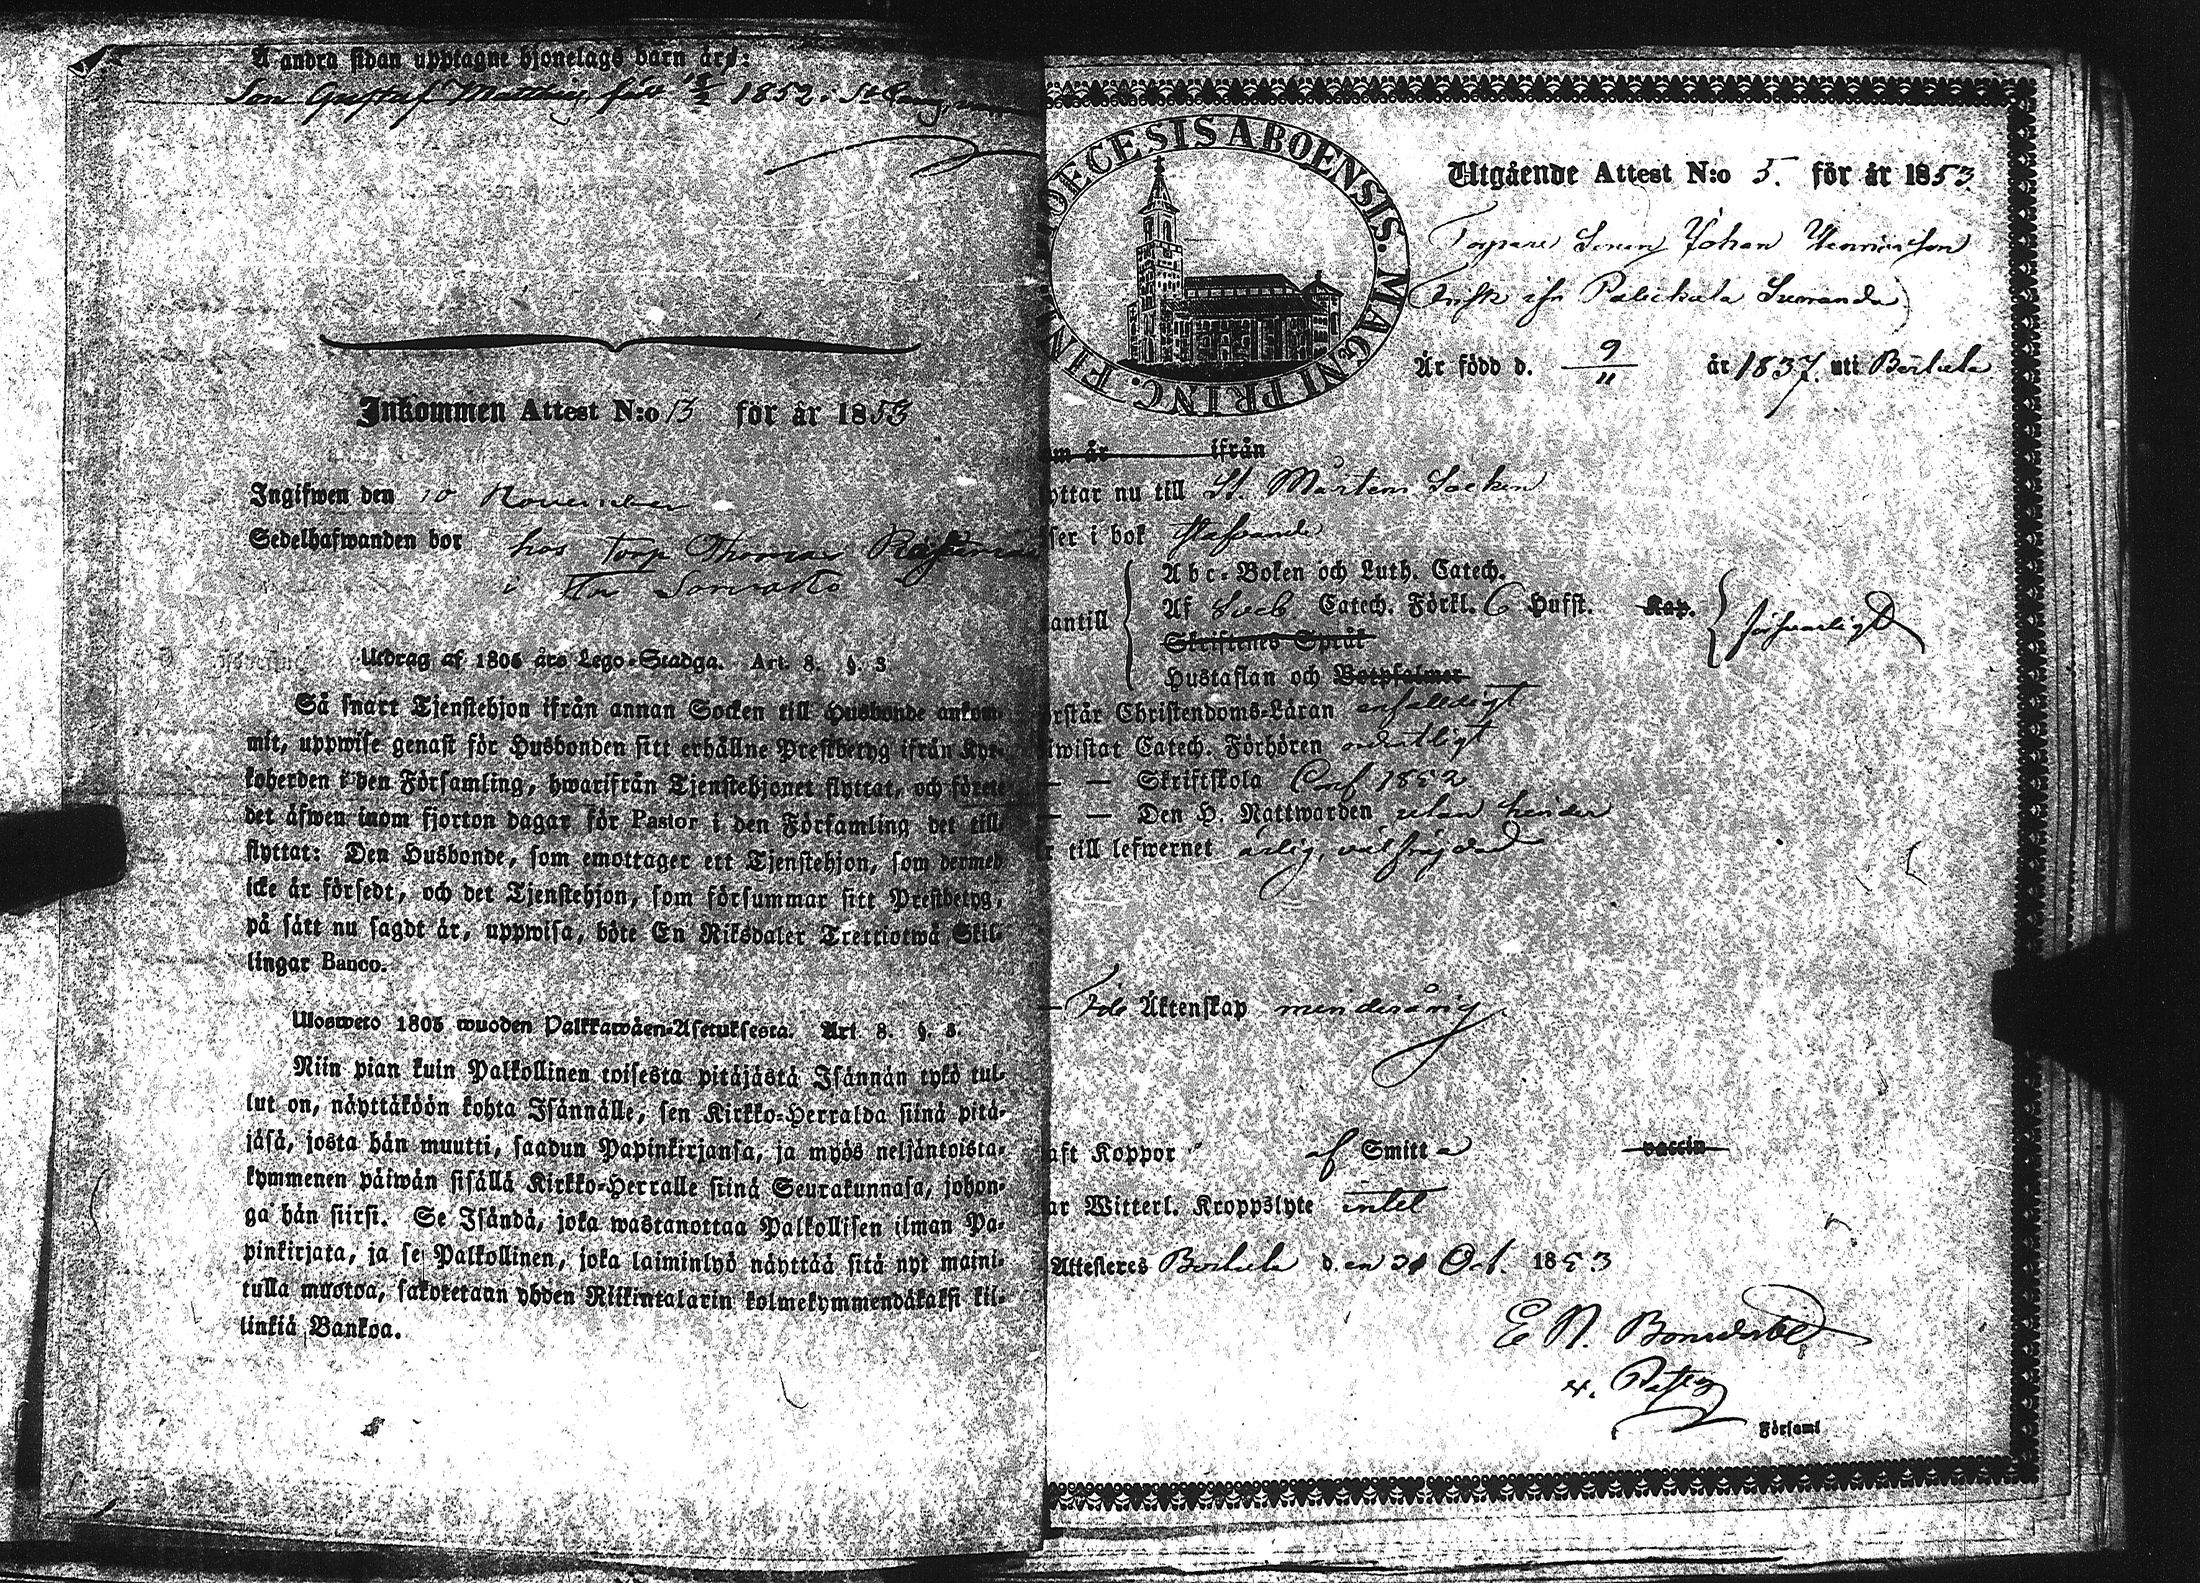 Å andra sidan upptagne hjonelags barn äro:
Son Gustaf Matthias född 18/2 1852.
Inkommen Attest N:o 13 för år 1853
Ingifwen den 10 November
Sedelhafwanden bor hos Torp Thomas
i
Utdrag af 1805 års Lego-Stadga. Art. 8. §. 3
Så snart Tjenstehjon ifrån annan Socken till Husbonde ankom-
mit, uppwise genast för Husbonden sitt erhållne Prestbetyg ifrån Kyr-
koherden i den Församling, hwarifrån Tjenstehjonet flyttat, och förete
det äfwen inom fjorton dagar för Pastor i den Församling det till-
flyttat: Den Husbonde, som emottager ett Tjenstehjon, som dermed
icke är försedt, och det Tjenstehjon, som försummar sitt Prestbetyg,
på sätt nu sagdt är, uppwisa, böte En Riksdaler Trettiotwå Skil-
lingar Banco.
Ulosweto 1805 wuoden Palkkawäen-Asetuksesta. Art. 8. §. 3.
Niin pian kuin Palkollinen toisesta pitäjästä Isännän tykö tul-
lut on, näyttäköön kohta Isännälle, sen Kirkko-Herralda siinä pitä-
jäsä, josta hän muutti, saadun Papinkirjansa, ja myös neljäntoista-
kymmenen päiwän sisällä Kirkko-Herralle siinä Seurakunnasa, johon-
ga hän siirsi. Se Isändä, joka wastanottaa Palkollisen ilman Pa-
pinkirjata, ja se Palkollinen, joka laiminlyö näyttää sitä nyt maini-
tulla muotoa, sakotetaan yhden Riikintalarin kolmekymmendäkaksi kil-
linkiä Bankoa.
DIOECESIS ABOENSIS. MAGNI PRINC. FIN
Utgående Attest N:o 5. för år 1853
Torpare Sonen Johan Henricsson
Är född d. 9/11 år 1837. uti
m är ifrån
yttar nu till St. Mårtens Socken
ser i bok stafvande
Abc-Boken och Luth. Catech.
antill Af Sveb. Catech. Förkl. 6 Hufst. Kap. försvarligt
Skriftenes Språk
Hustaflan och Botpsalmer
rstår Christendoms-Läran enfalldigt
iwistat Catech. Förhören ordentligt
— — Skriftskola Conf 1852
— — Den H. Nattwarden utan hinder
r till lefwernet ärlig, välfräjdad
Äktenskap minderårig
aft Koppor af Smitta vaccin
ar Witterl. Kroppslyte intet
Attesteres den 31 Oct. 1853
E N.
Församl